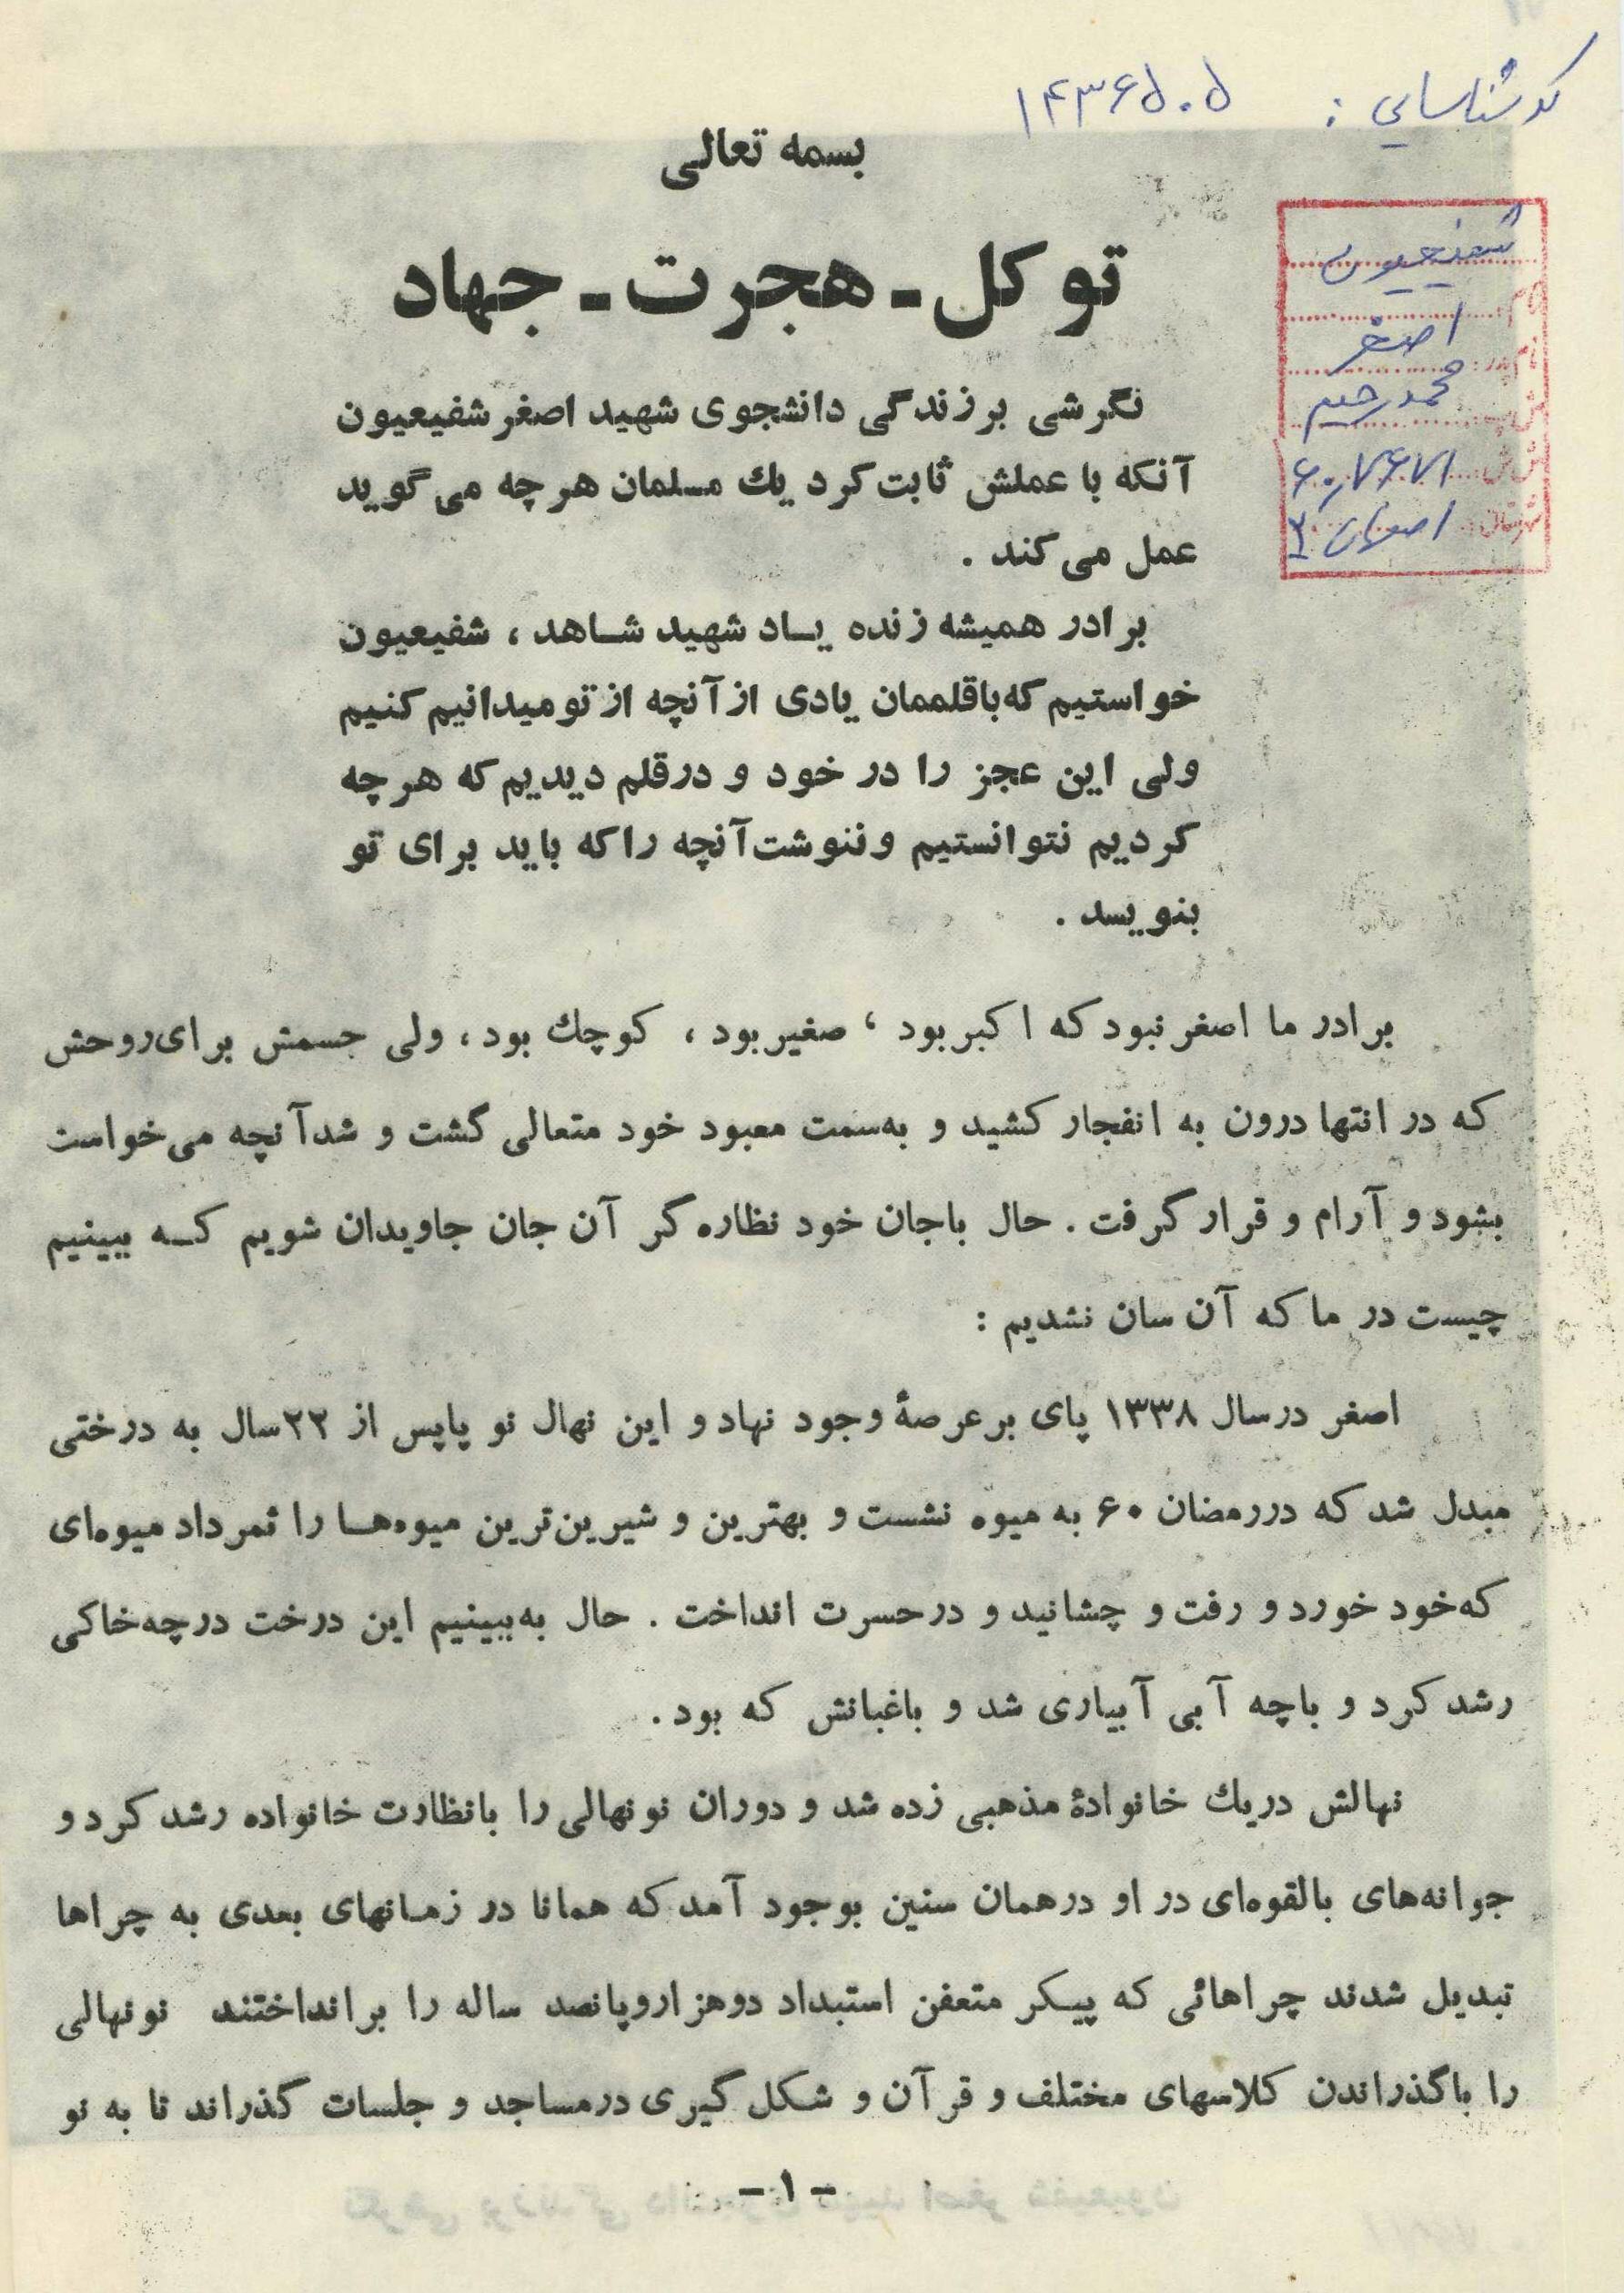 کد شناسایی : ۱۴۳۶۵۰۵
بسمه تعالی
شفیعیون
نام:
اصغر
نام پدر:
محمدرحیم
ش پ:
ش ش:
اصفهان ۲
شهرستان:
توکل ـ هجرت ـ جهاد
نگرشی بر زندگی دانشجوی شهید اصغر شفیعیون
آنکه با عملش ثابت کرد یك مسلمان هر چه می گوید
عمل می کند .
برادر همیشه زنده یاد شهید شاهد ، شفیعیون
خواستیم که باقلممان یادی از آنچه از تو میدانیم کنیم
ولی این عجز را در خود و در قلم دیدیم که هر چه
کردیم نتوانستیم و ننوشت آنچه را که باید برای تو
بنویسد .
برادر ما اصغر نبود که اکبر بود ، صغیر بود ، کوچك بود ، ولی جسمش برای روحش
که در انتها درون به انفجار کشید و به سمت معبود خود متعالی گشت و شد آنچه می خواست
بشود و آرام و قرار گرفت . حال باجان خود نظاره گر آن جان جاویدان شویم کـه ببینیم
چیست در ما که آن سان نشدیم :
اصغر در سال ۱۳۳۸ پای بر عرصهٔ وجود نهاد و این نهال نو پاپس از ۲۲ سال به درختی
مبدل شد که در رمضان ۶۰ به میوه نشست و بهترین و شیرین ترین میوه هـا را ثمر داد میوه ای
که خود خورد و رفت و چشانید و در حسرت انداخت . حال به ببینیم این درخت در چه خاکی
رشد کرد و باچه آبی آبیاری شد و باغبانش که بود .
نهالش در یك خانوادهٔ مذهبی زده شد و دوران نونهالی را بانظارت خانواده رشد کرد و
جوانه های بالقوه ای در او در همان سنین بوجود آمد که همانا در زمانهای بعدی به چراها
تبدیل شدند چراهائی که پیـکر متعفن استبداد دوهزاروپانصد ساله را بر انداختند نونهالی
را باگذراندن کلاسهای مختلف و قرآن و شکل گیری در مساجد و جلسات گذراند تا به نو
- ۱ -